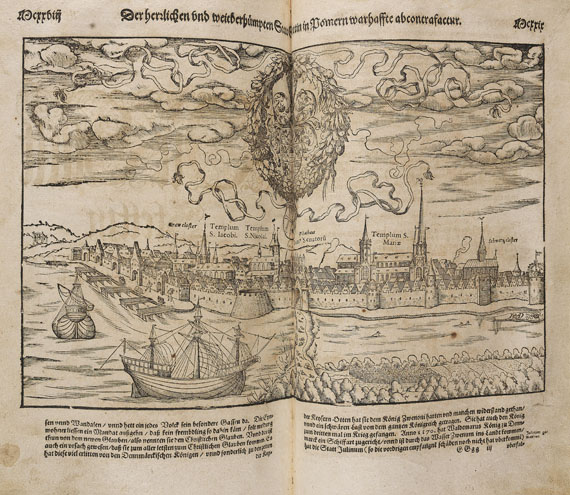 Mcxxviij Der herrlichen vnd weitberhümpten Stat in Pomern warhaffte abcontrafactur. Mcxxix
Templum S. Iacobi.
Templum S. Nicolai
Senatoriũ
Templum S. Mariæ
sen vnnd Wandalen/ vnnd hett ein jedes Volck sein besondere Gassen da. Die Eyn-
wohner liessen ein Mandat außgehen/ daß kein frembdling so da hin käm/ solt meldung
thun von dem newen Glauben/ also nennten sie den Christlichen Glauben. Vnnd diß ist
auch ein vrsach gewesen/ daß sie zum aller letsten zum Christlichen Glauben kommen. Es
hat diese viel erlitten von den Dennmärckischen Königen/ vnnd sonderlich zu den zeiten
der Key-
der Keysern Otten hat sie dem König Zwenoni harten vnd manchen widerstand gethan/
vnnd ein schwären Last von dem gantzen Königreich getragen. Sie hat auch den König
zum dritten mal im Krieg gefangen. Anno 1170. hat Waldemarus König zu Denn-
marck ein Schiffart zugericht/ vnnd ist durch das Wasser Zwenum ins Landt kommen/
hat die Statt Julinum (so die vorderigen empfangnen schäden noch nicht hat vberkommen)
GGgg iij
vberfal-